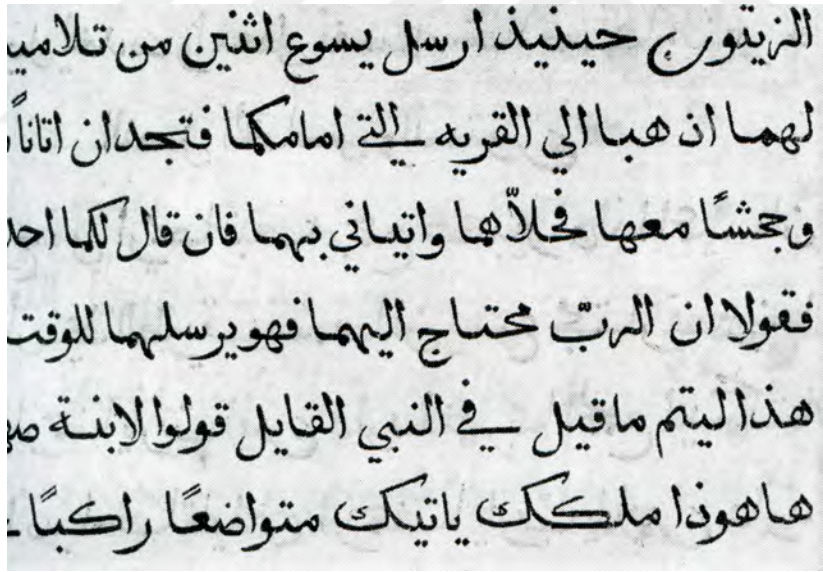 الزيتون حينيذ ارسل يسوع اثنين من تلاميـ
لهما اذهبا الي القريه التي امامكما فتجدان اتاناً
وجحشًا معها فحلاّهما واتياني بهما فان قال لكما احد
فقولا ان الربّ محتاج اليهما فهو يرسلهما للوقت
هذا ليتم ما قيل في النبي القايل قولوا لابنة صهـ
ها هوذا ملكك ياتيك متواضعًا راكبًا